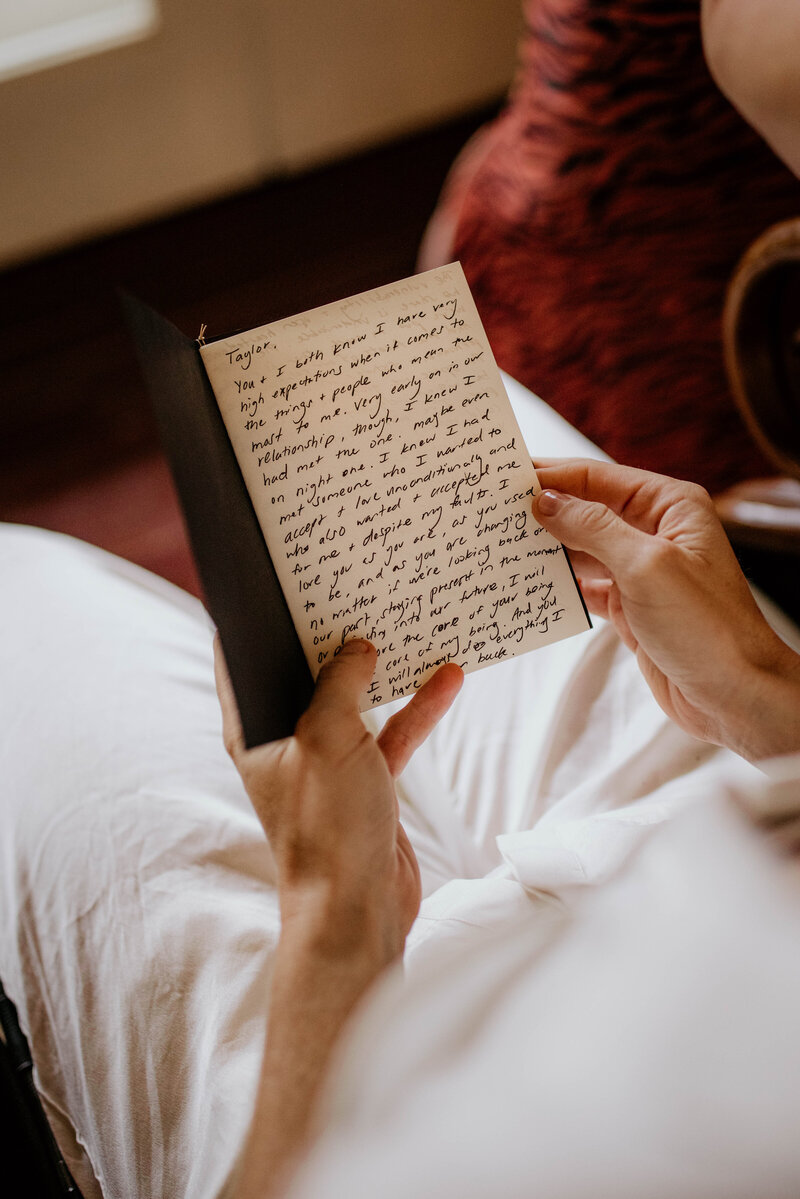 Taylor,
You + I both know I have very
high expectations when it comes to
the things + people who mean the
most to me. Very early on in our
relationship, though, I knew I
had met the one. maybe even
on night one. I know I had
met someone who I wanted to
accept + love unconditionally and
who also wanted + accepted me
for me + despite my faults. I
love you as you are, as you used
to be, and as you are changing
no matter if we're looking back on
our past, staying present in the moment
or into our future, I will
the core of your being
core of my being. And you
I will always do everything I
to have back.